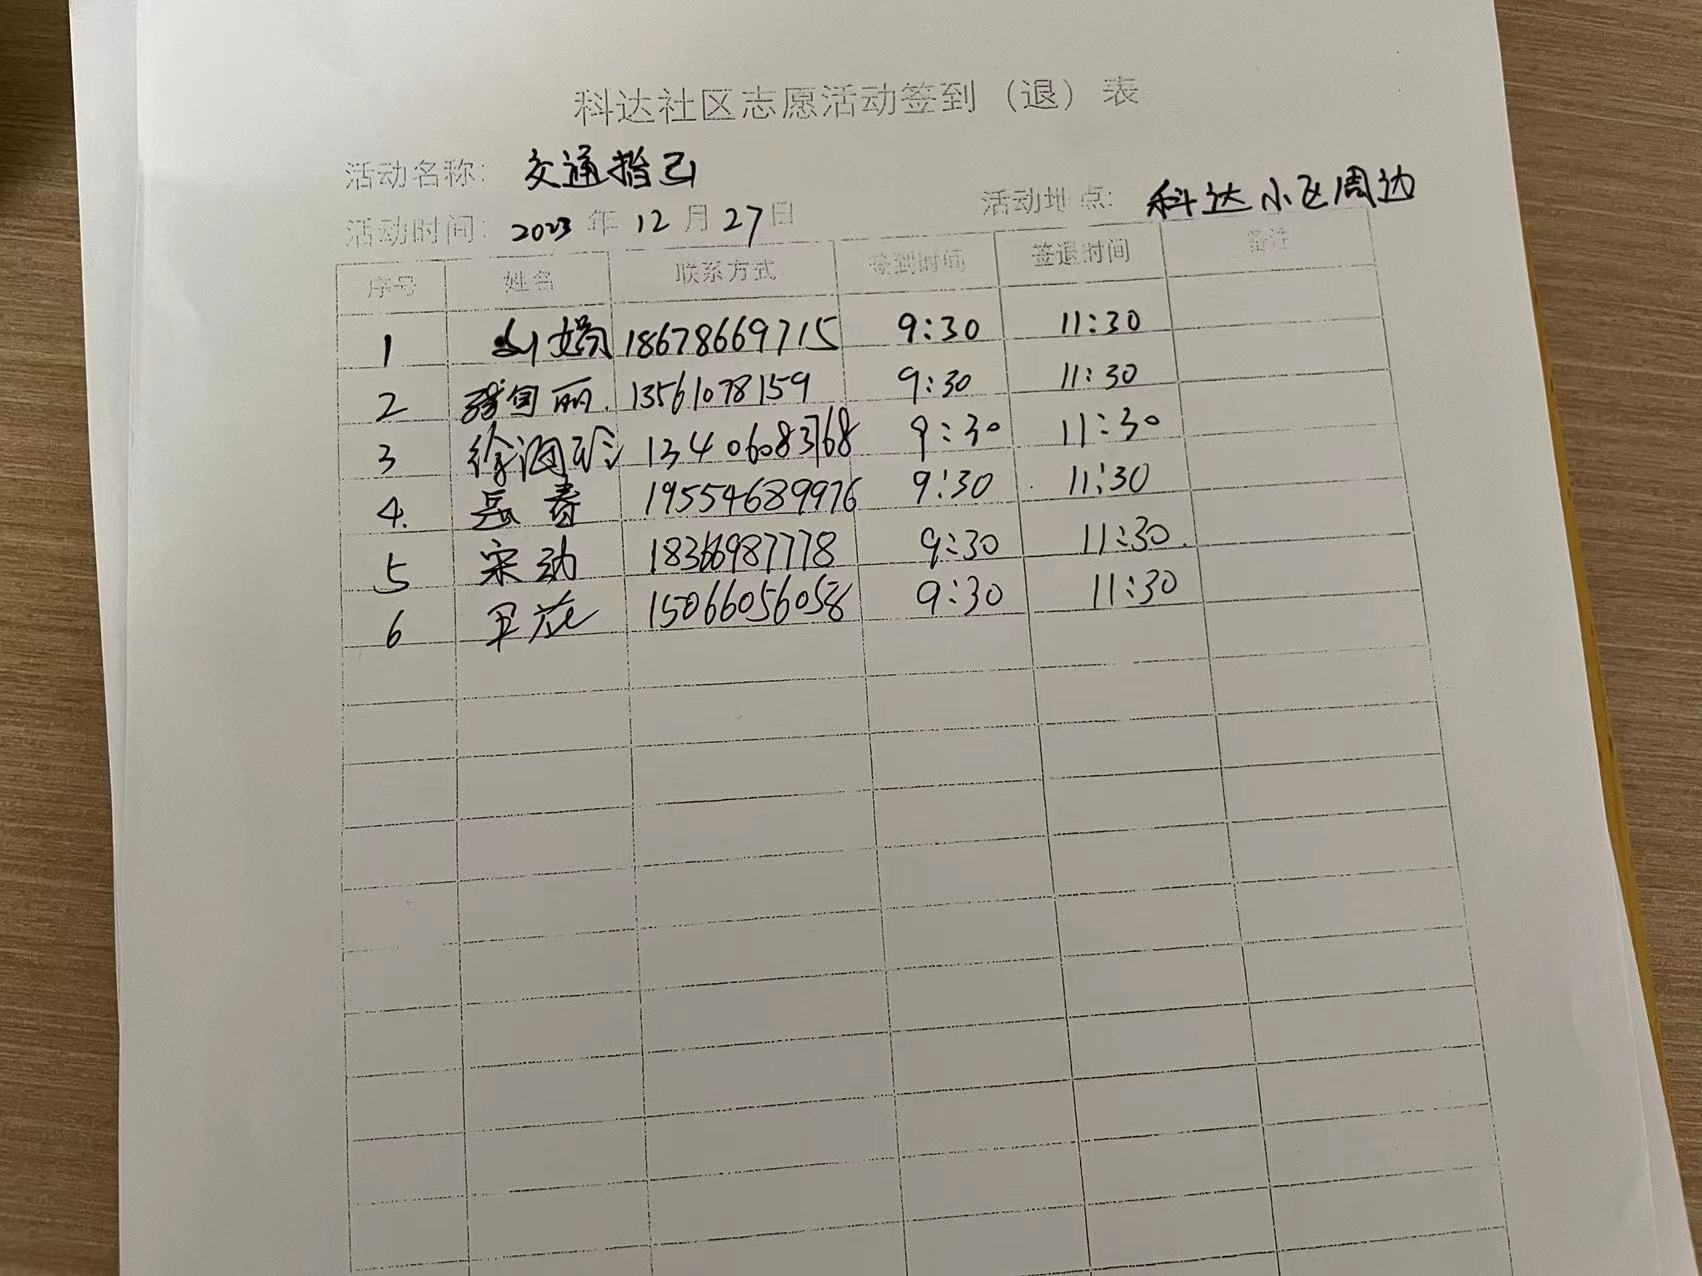 科达社区志愿活动签到（退）表
活动名称： 交通指
活动时间： 2023 年 12 月 27 日 活动地点： 科达小区周边
序号 姓名 联系方式 签到时间 签退时间 备注
1 娟 18678669715 9:30 11:30
2 丽 13561078159 9:30 11:30
3 徐 13406083768 9:30 11:30
4. 岳春 19554689976 9:30 11:30
5 宋 18366987778 9:30 11:30
6 15066056058 9:30 11:30